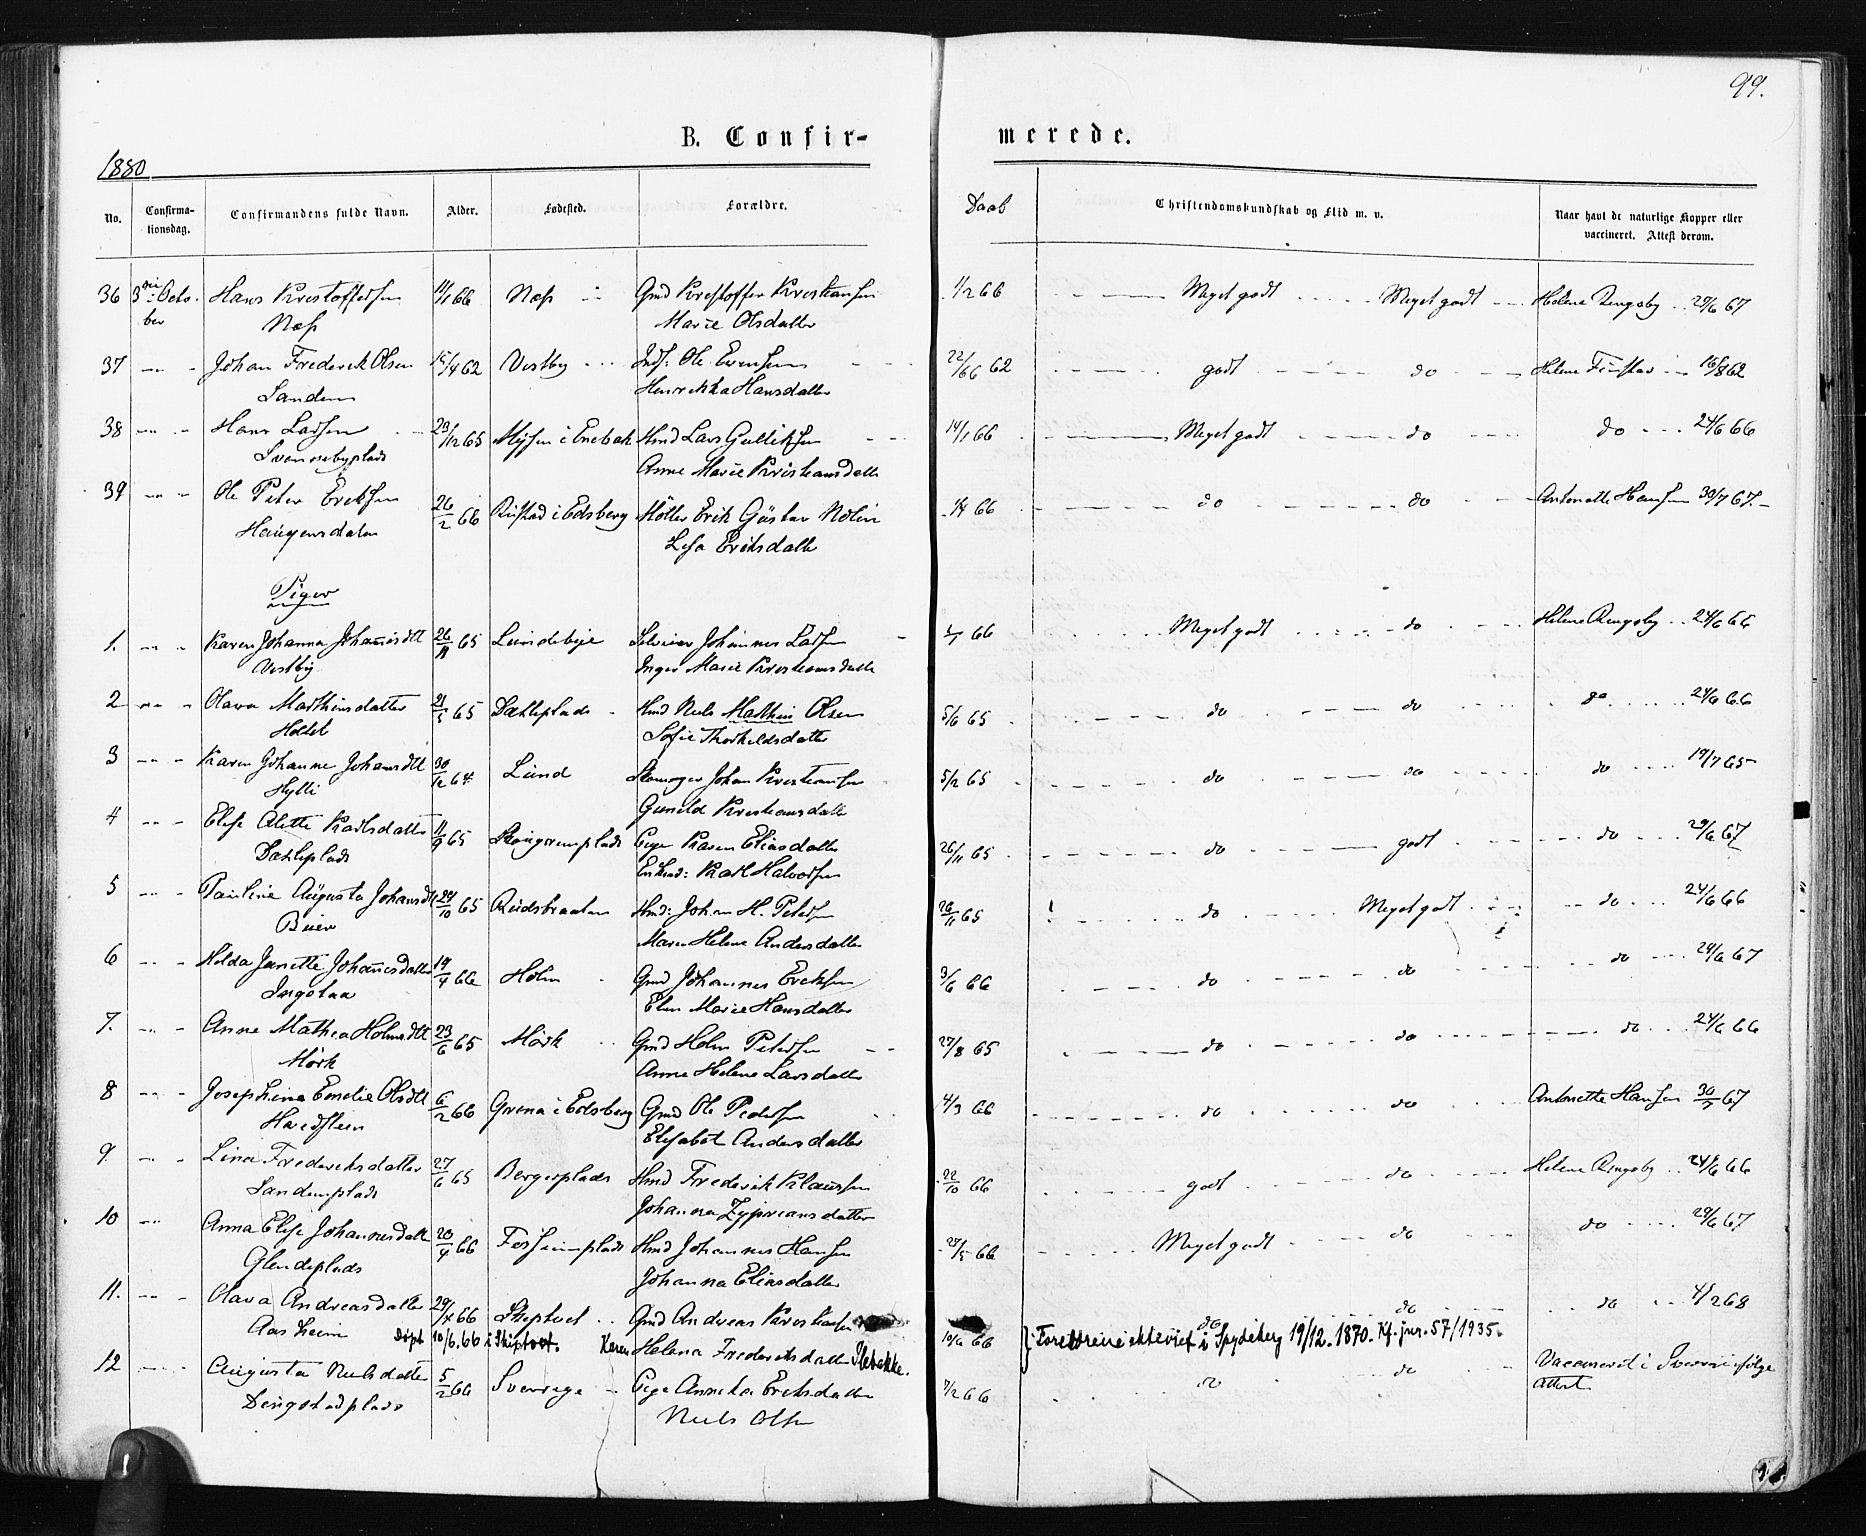 99.
B. Confir-merede.
1880
No. Confirma-tionsdag. Confirmandens fulde Navn. Alder. Fødested. Forældre. Daab Christendomskundskab og Flid m. v. Naar havt de naturlige Kopper eller vaccineret. Attest derom.
36 3die Octo- Hans Kristoffersen 11/1 66 Næs Gmd Kristoffer Kristiansen 1/2 66 Meget godt Meget godt Helene Rengsby 29/6 67
ber Næs Marie Olsdatter
37 Johan Frederik Olsen 15/4 62 Vestby Inds: Ole Evensen 22/66 62 godt do Helene Finstav 16/8 62
Sandem Henrikka Hansdatter
38 Hans Larsen 23/12 65 Mysen i Enebak Hmd Lars Gulliksen 14/1 66 Meget godt do do 24/6 66
Svennebyplads Anne Marie Kristiansdatt
39 Ole Peter Eriksen 26/2 66 Rustad i Edsberg Møller Erik Gustav Nolin 1/4 66 do do Antonette Hansen 30/7 67.
Haugensdalen Lisa Eriksdatt
Piger
1. Karen Johanna Johannisdtt 26/11 65 Lundebye Selveier Johannes Larsen 1/1 66 Meget godt do Helene Rengsby 24/6 66
Vestby Inger Marie Kristiansdatte
2 Olava Mathinsdatter 21/5 65 Dæhliplads Hmd Niels Mathin Olsen 5/6 65 do do do 24/6 66
Holtet Sofie Thorkildsdatter
3 Karen Johanne Johansdtt 30/12 64 Lund Skomager Johan Kristiansen 5/2 65 do do do 19/7 65
Hylli Gunild Kristiansdatt
4 Elise Alette Karlsdatter 11/9 65 Skaugrumplads Pige Karen Eliasdatter 26/11 65 do godt do 29/6 67
Dæhliplads Enkmd: Karl Halvorsen
5 Pauline Augusta Johansdtt 29/10 65 Rudsbraaten Hmd: Johan H. Petersen 26/11 65 do Meget godt do 24/6 66
Buer Maren Helene Andersdatter
6 Hilda Janette Johannesdatter 19/4 66 Holm Gmd Johannes Eriksen 3/6 66 do do do 29/6 67
Ingstaa Elen Marie Hansdatter
7. Anne Mathea Holmsdtt 23/6 65 Mørk Gmd Holm Petersen 27/8 65 do do do 24/6 66
Mørk Anne Helene Larsdatter
8 Josephine Emelie Olsdtt 6/2 66 Grena i Edsberg Gmd Ole Pedersen 4/3 66 do do Antonette Hansen 30/7 67
Haredsteen Elisabet Andersdatter
9. Lina Frederiksdatter 27/6 65 Bergerplads Hmd Frederik Klausen 22/10 66 godt do Helene Rengsby 24/6 66
Sandemplads Johanna Zypriansdatter
10 Anna Elise Johannesdatt 20/4 66 Forseimplads Hmd Johannes Hansen 27/5 66 Meget godt do do 29/6 67
Glendeplads Johanna Eliasdatter
11. Olava Andreasdatter 29/4 66 Skiptvet Gmd Andreas Kristiansen 10/6 66 do do do 4/2 68
Aasheim døpt 10/6. 66 i Skiptvet. Karen Helena Frederiksdatter Slebakke. Foreldrene ekteviet i Spydeberg 19/12. 1870. Kf. jnr. 57/1935.
12 Augusta Nielsdatter 5/2 66 Sverrige Pige Annika Eriksdatter 7/2 66 do do Vaccineret i Sverrig ifølge
Dingstadplads Niels Olsen Attest